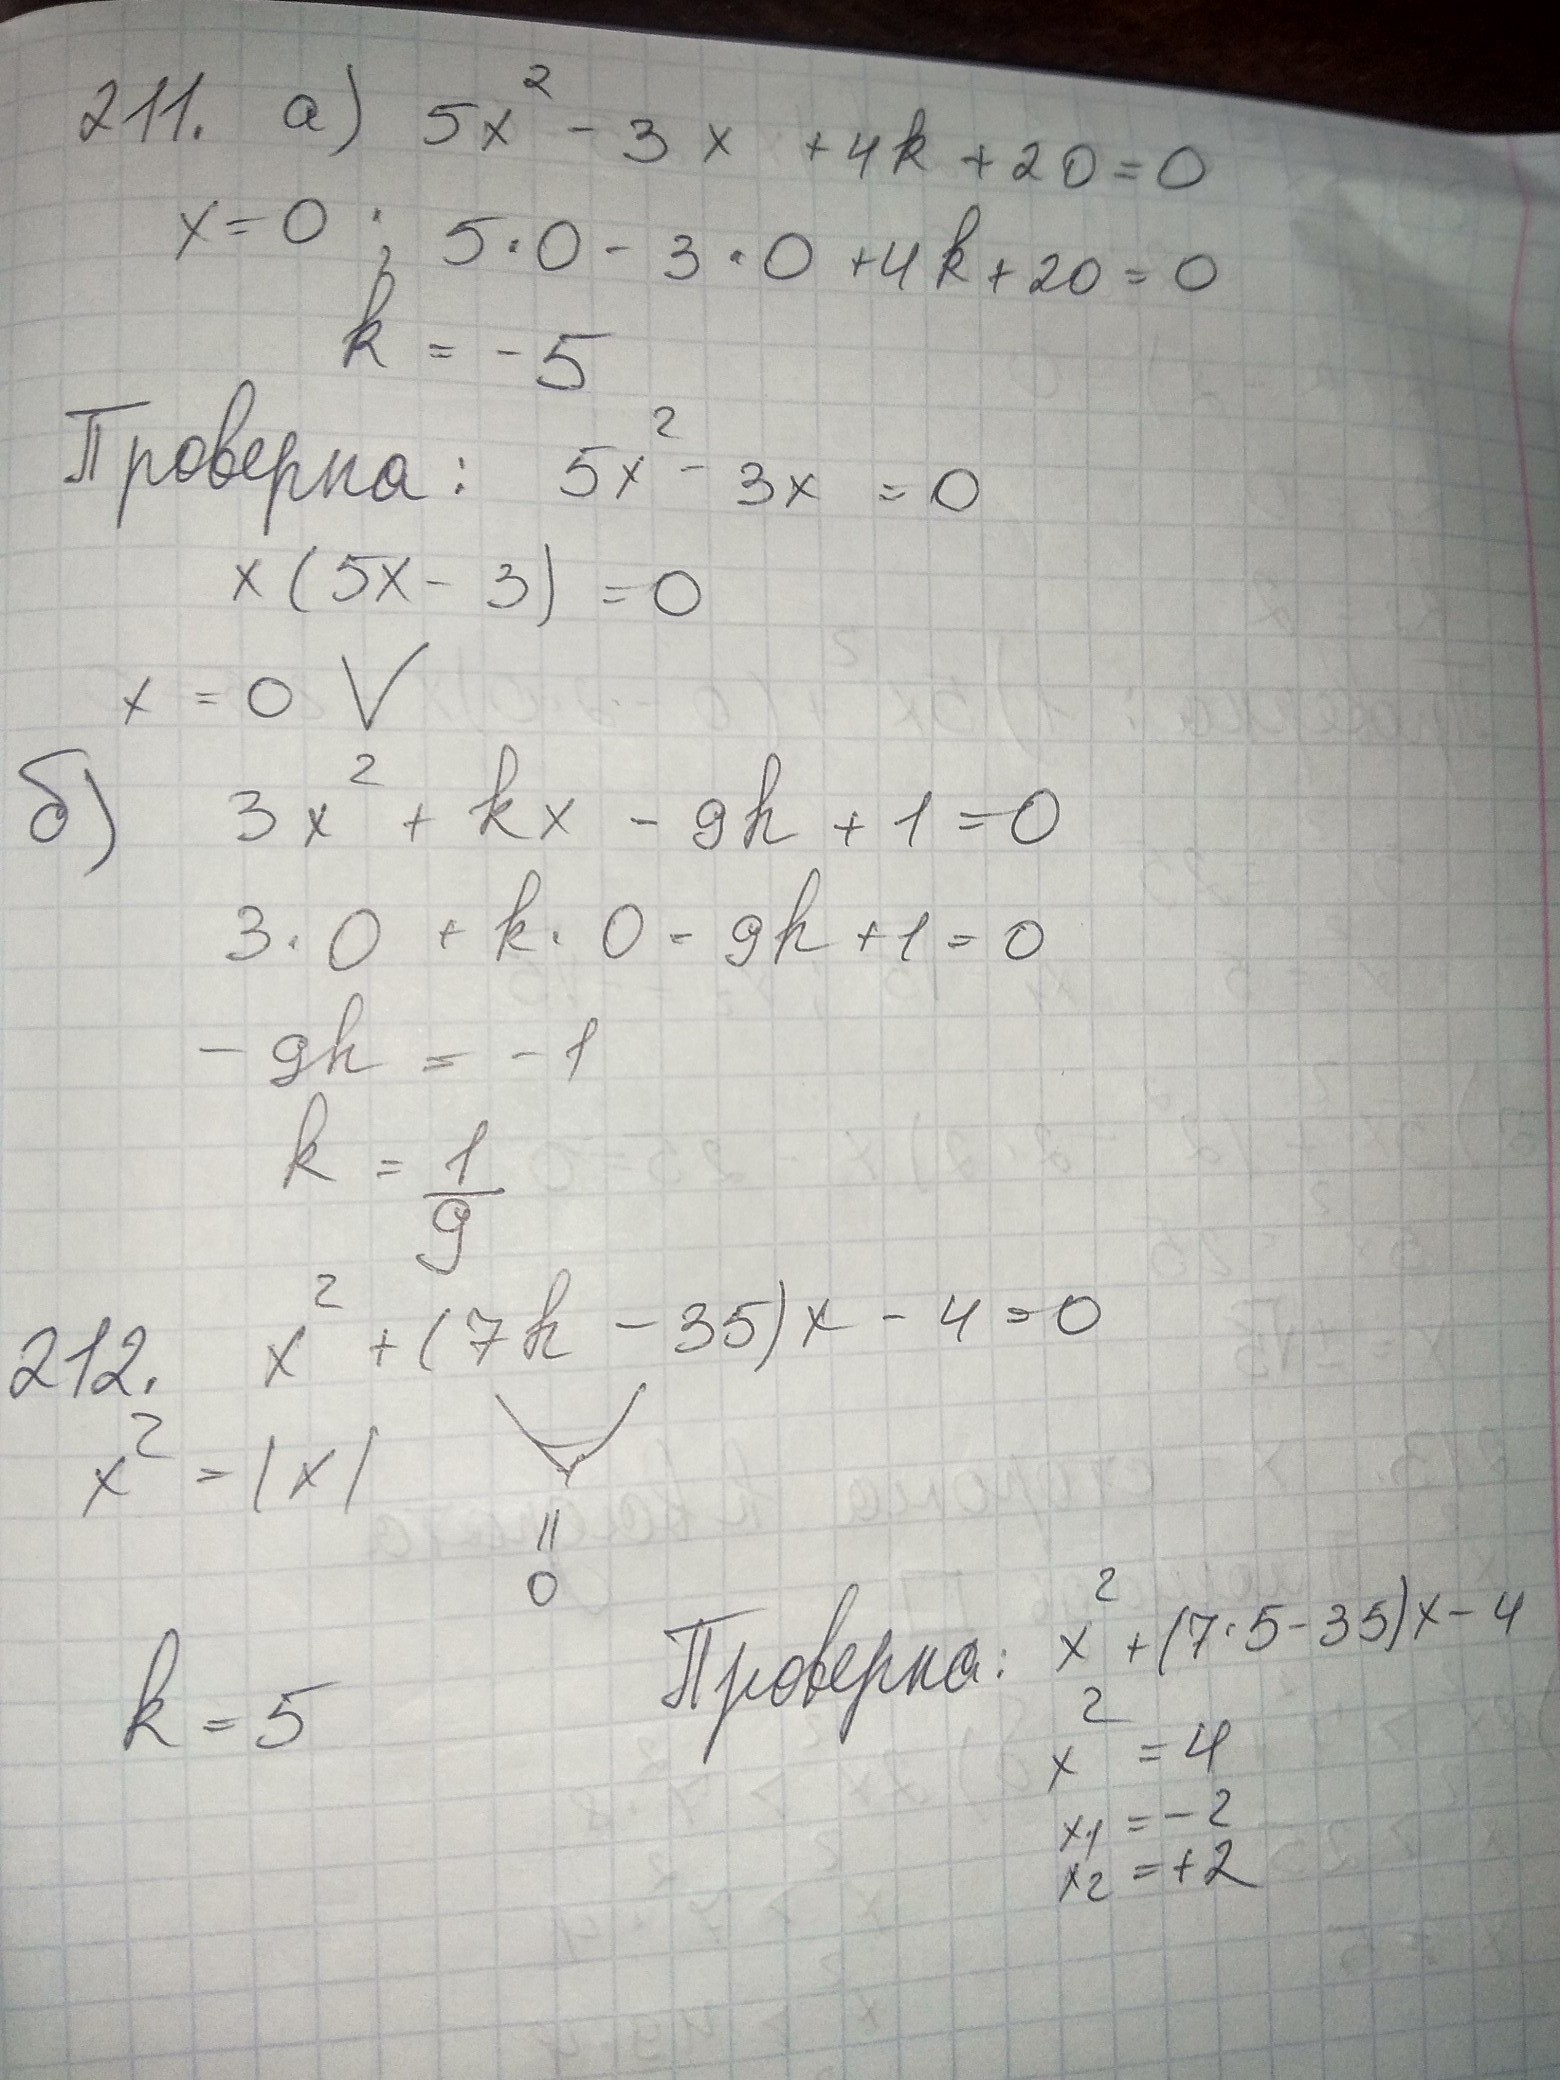 211. а) 5x² - 3x + 4k + 20 = 0
x = 0 ; 5·0 - 3·0 + 4k + 20 = 0
k = -5
Проверка: 5x² - 3x = 0
x(5x - 3) = 0
x = 0 V
б) 3x² + kx - 9k + 1 = 0
3·0 + k·0 - 9k + 1 = 0
-9k = -1
k = 1/9
212. x² + (7k - 35)x - 4 = 0
x² = |x|
=
0
k = 5
Проверка: x² + (7·5 - 35)x - 4
x² = 4
x1 = -2
x2 = +2